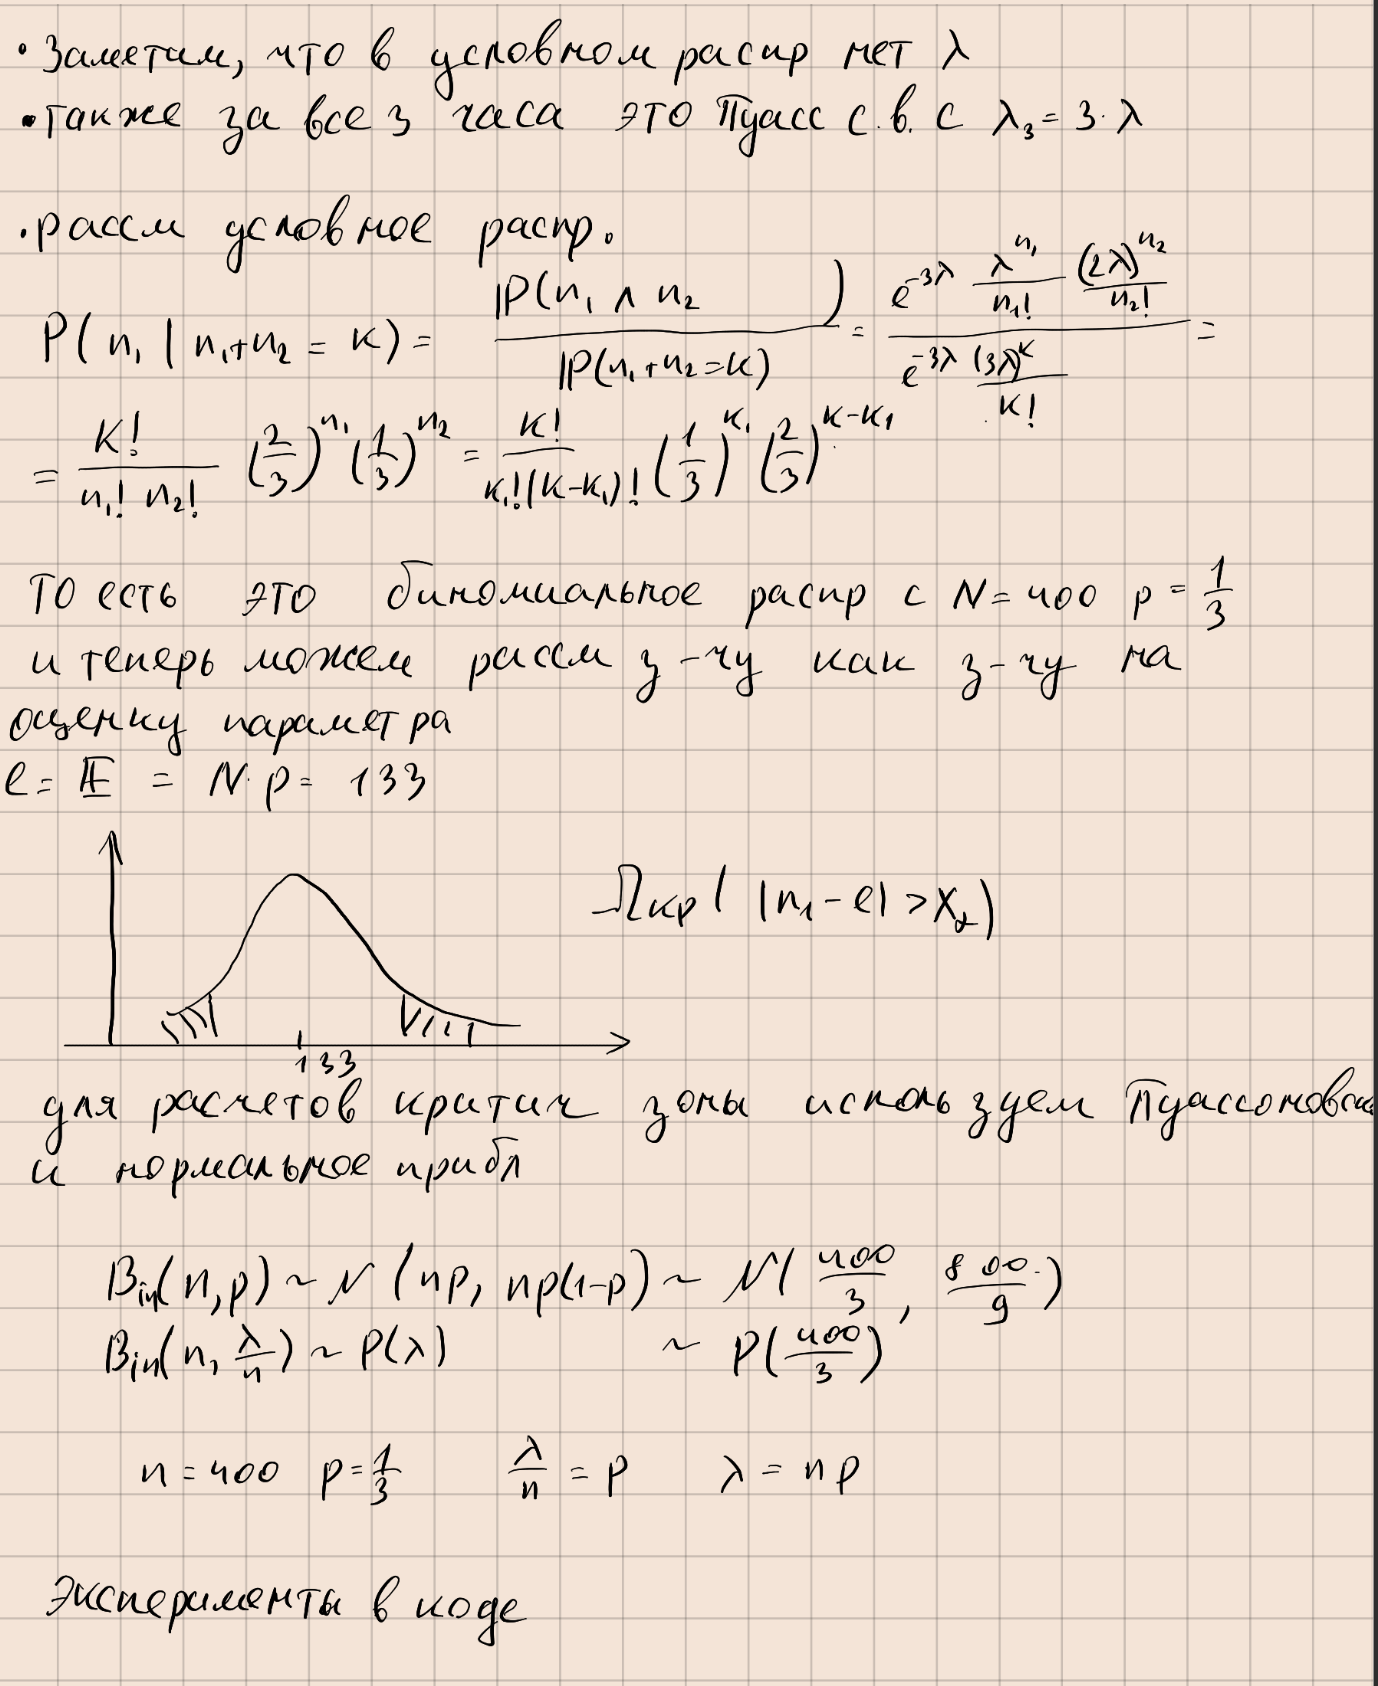 • Заметим, что в условном распр нет λ
• также за все 3 часа это Пуасс с.в. с λ₃ = 3·λ
. рассм условное распр.
P(n₁ | n₁+n₂ = K) = ℙ(n₁ ∧ n₂ ) / ℙ(n₁+n₂=K) = e^{-3λ} λ^{n₁}/n₁! (2λ)^{n₂}/n₂! / e^{-3λ} (3λ)^K/K! =
= K!/(n₁! n₂!) (2/3)^{n₁} (1/3)^{n₂} = K!/(K₁!(K-K₁)!) (1/3)^{K₁} (2/3)^{K-K₁}
то есть это биномиальное распр с N = 400 p = 1/3
и теперь можем рассм з-чу как з-чу на
оценку параметра
e = 𝔼 = N·p = 133
Ωкр( |n₁ - e| > X_α)
133
для расчетов критич зоны используем
и нормальное прибл
Bin(n,p) ~ N(np, np(1-p) ~ N(400/3, 800/9)
Bin(n, λ/n) ~ P(λ) ~ P(400/3)
n = 400 p = 1/3 λ/n = p λ = np
Эксперименты в коде